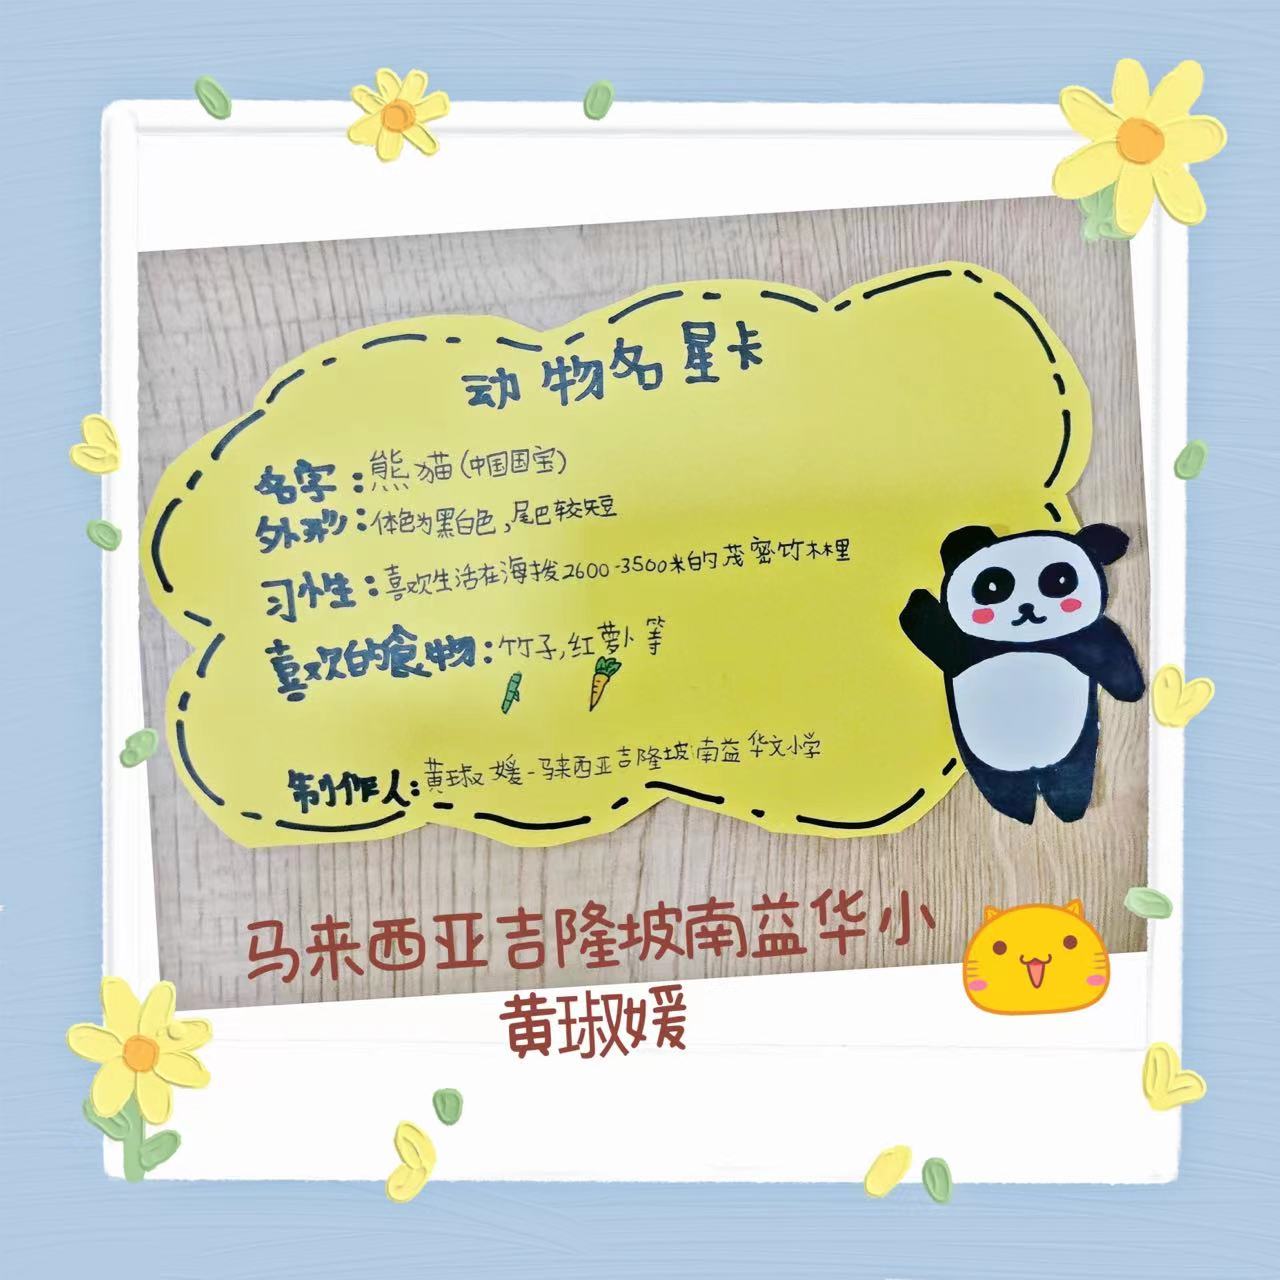 动物名星卡
名字：熊猫(中国国宝)
外形：体色为黑白色，尾巴较短
习性：喜欢生活在海拔2600-3500米的茂密竹林里
喜欢的食物：竹子，红萝卜等
制作人：黄琡媛-马来西亚吉隆坡南益华文小学
马来西亚吉隆坡南益华小
黄琡媛